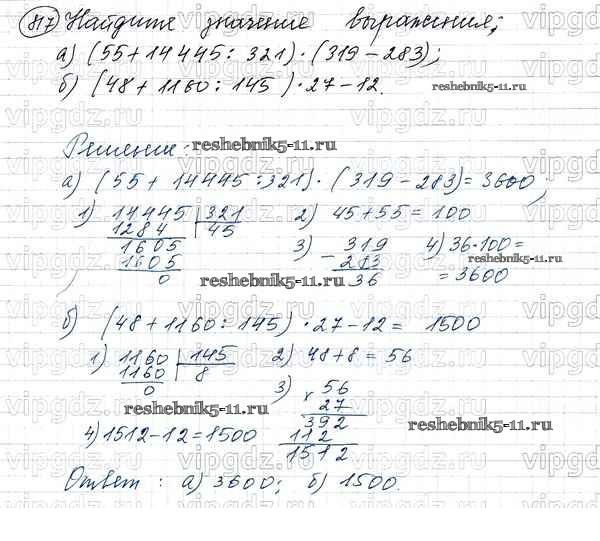 817 Найдите значение выражения;
а) (55+14445 : 321) · (319-283);
б) (48+1160 : 145) · 27-12.
Решение.
reshebnik5-11.ru
а) (55+14445 : 321) · (319-283) = 3600;
1) 14445 | 321   2) 45+55=100
1284   45
1605   3) 319   4) 36·100=
1605   - 283   = 3600
0   36
reshebnik5-11.ru
б) (48+1160 : 145) · 27-12 = 1500
1) 1160 | 145   2) 48+8=56
1160   8
0   3) 56
× 27
reshebnik5-11.ru   392
4) 1512-12=1500   112
1512
Ответ : а) 3600; б) 1500.